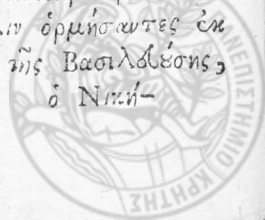 ὁρμήσαντες ἐκ
τῆς Βασιλευέσης,
ὁ Νική-
ΠΑΝΕΠΙΣΤΗΜΙΟ ΚΡΗΤΗΣ